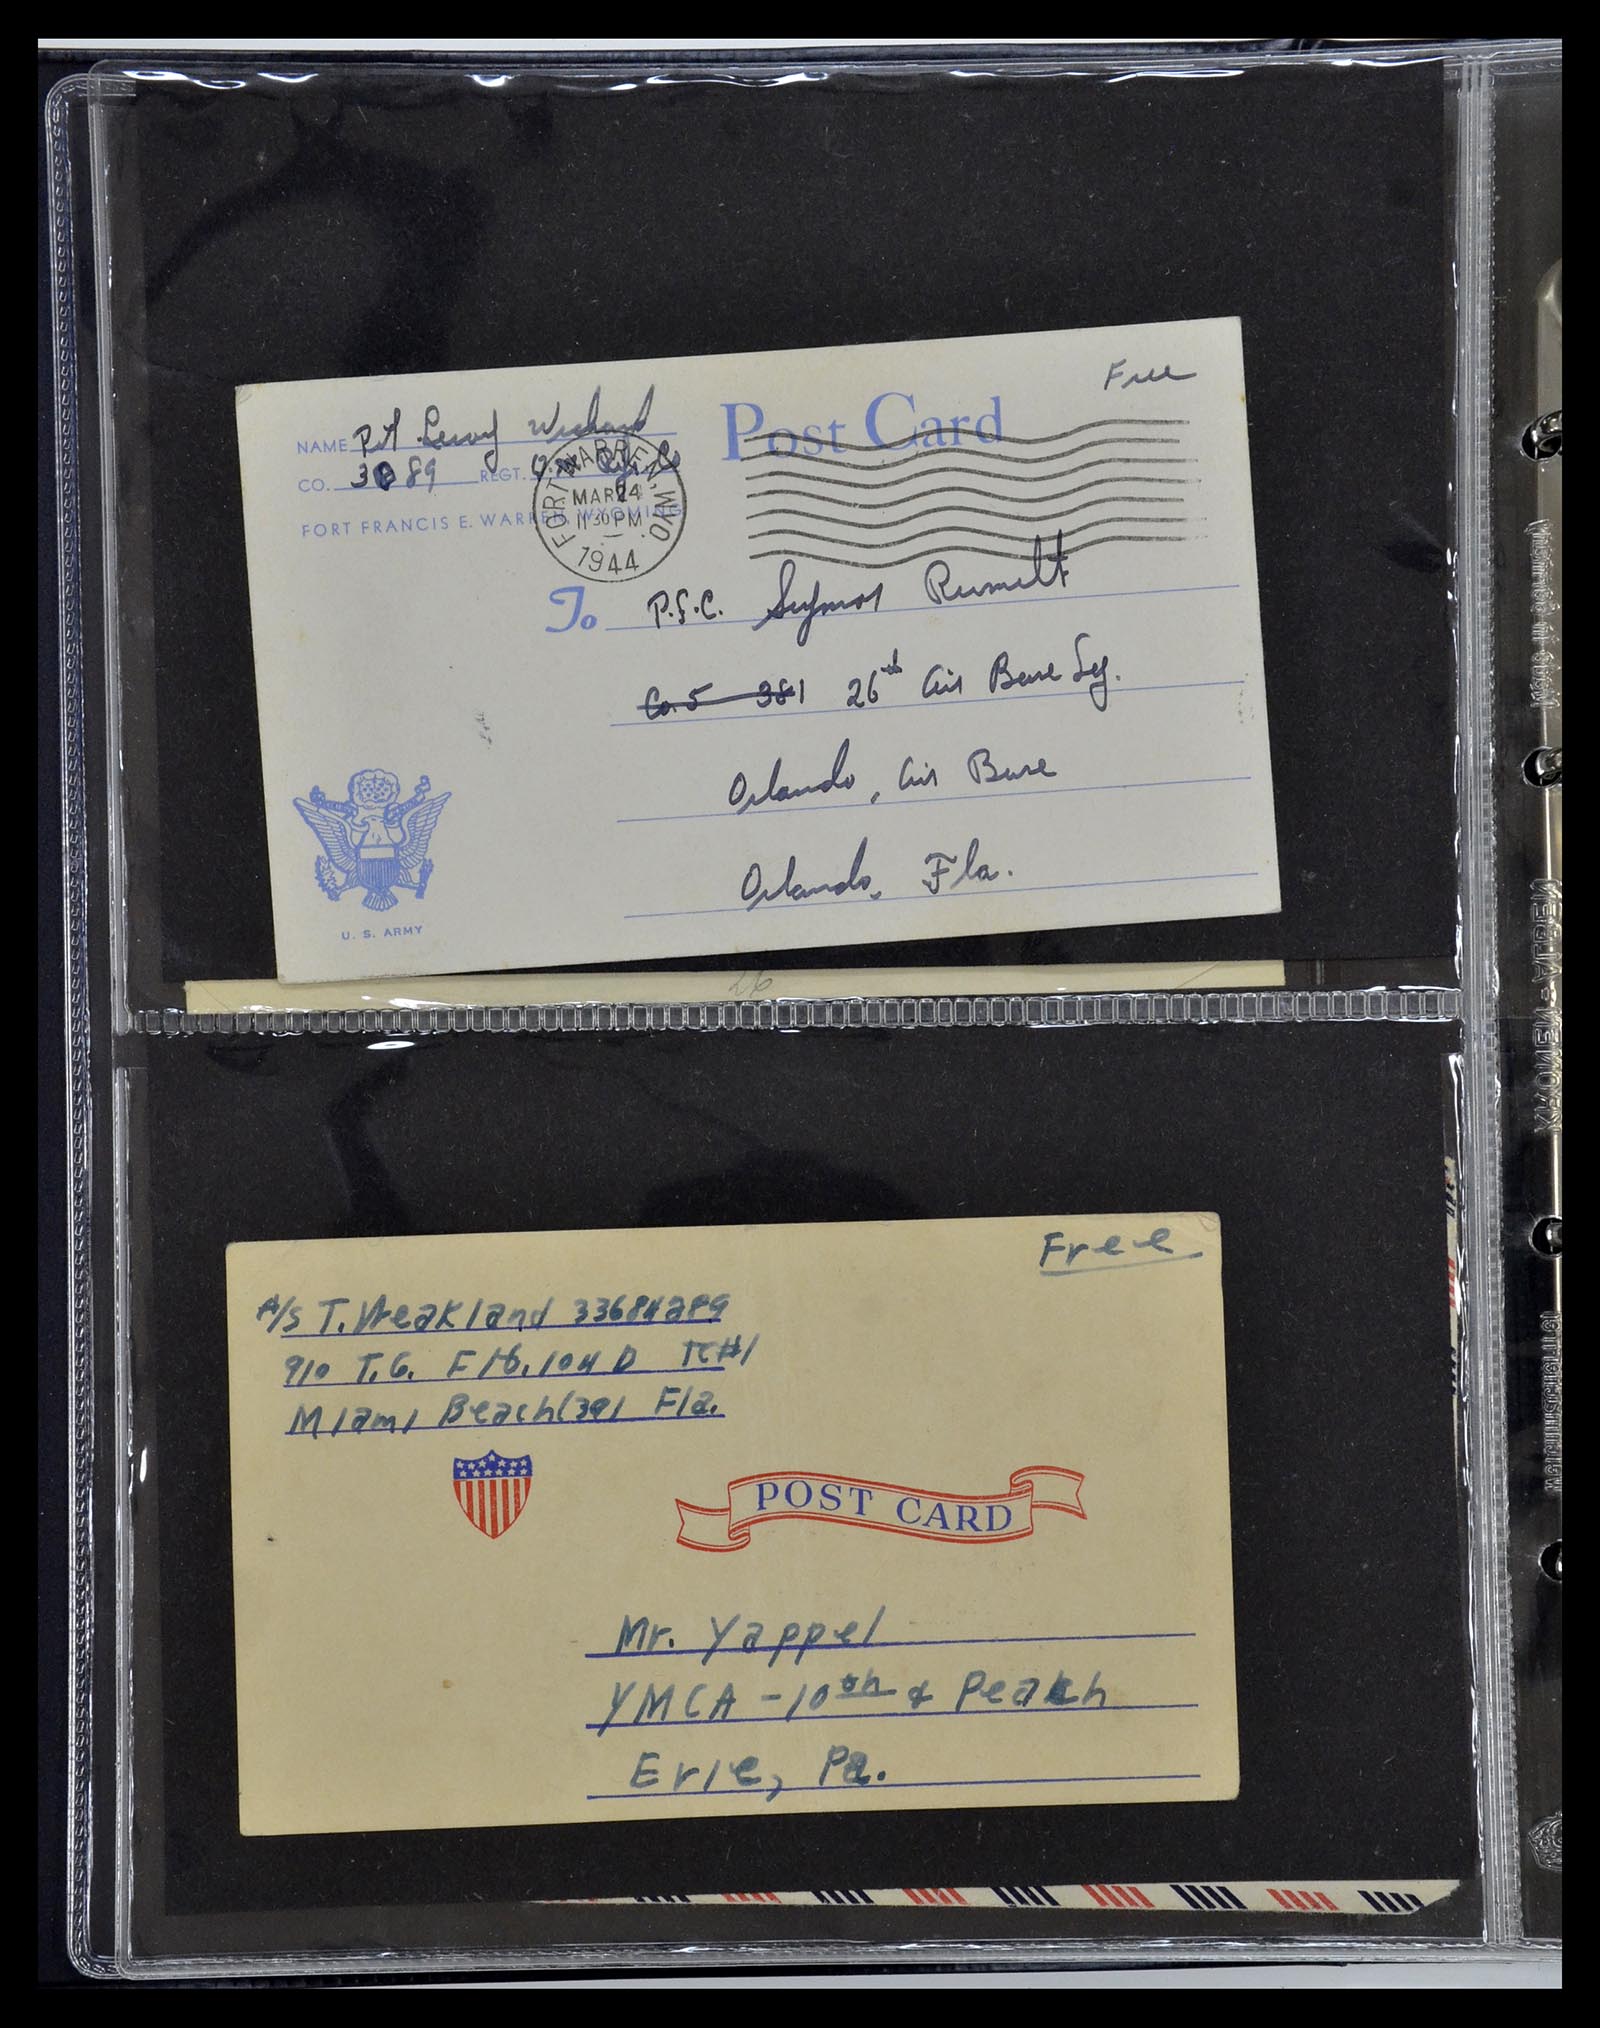 Free
Post Card
NAME Pvt Leroy
CO. 3089 REGT.
FORT FRANCIS E. WARREN, WYOMING
FORT WARREN, WYO.
MAR 24
11 30 PM
1944
To P.F.C. Seymor Rumelt
Co. 5 381 26th Air Base Sq.
Orlando, Air Base
Orlando, Fla.
U. S. ARMY
26
Free
A/S T. Weakland 33684289
910 T.G. Flt. 104 D TC#1
Miami Beach (39) Fla.
POST CARD
Mr. Yappel
YMCA - 10th & Peach
Erie, Pa.